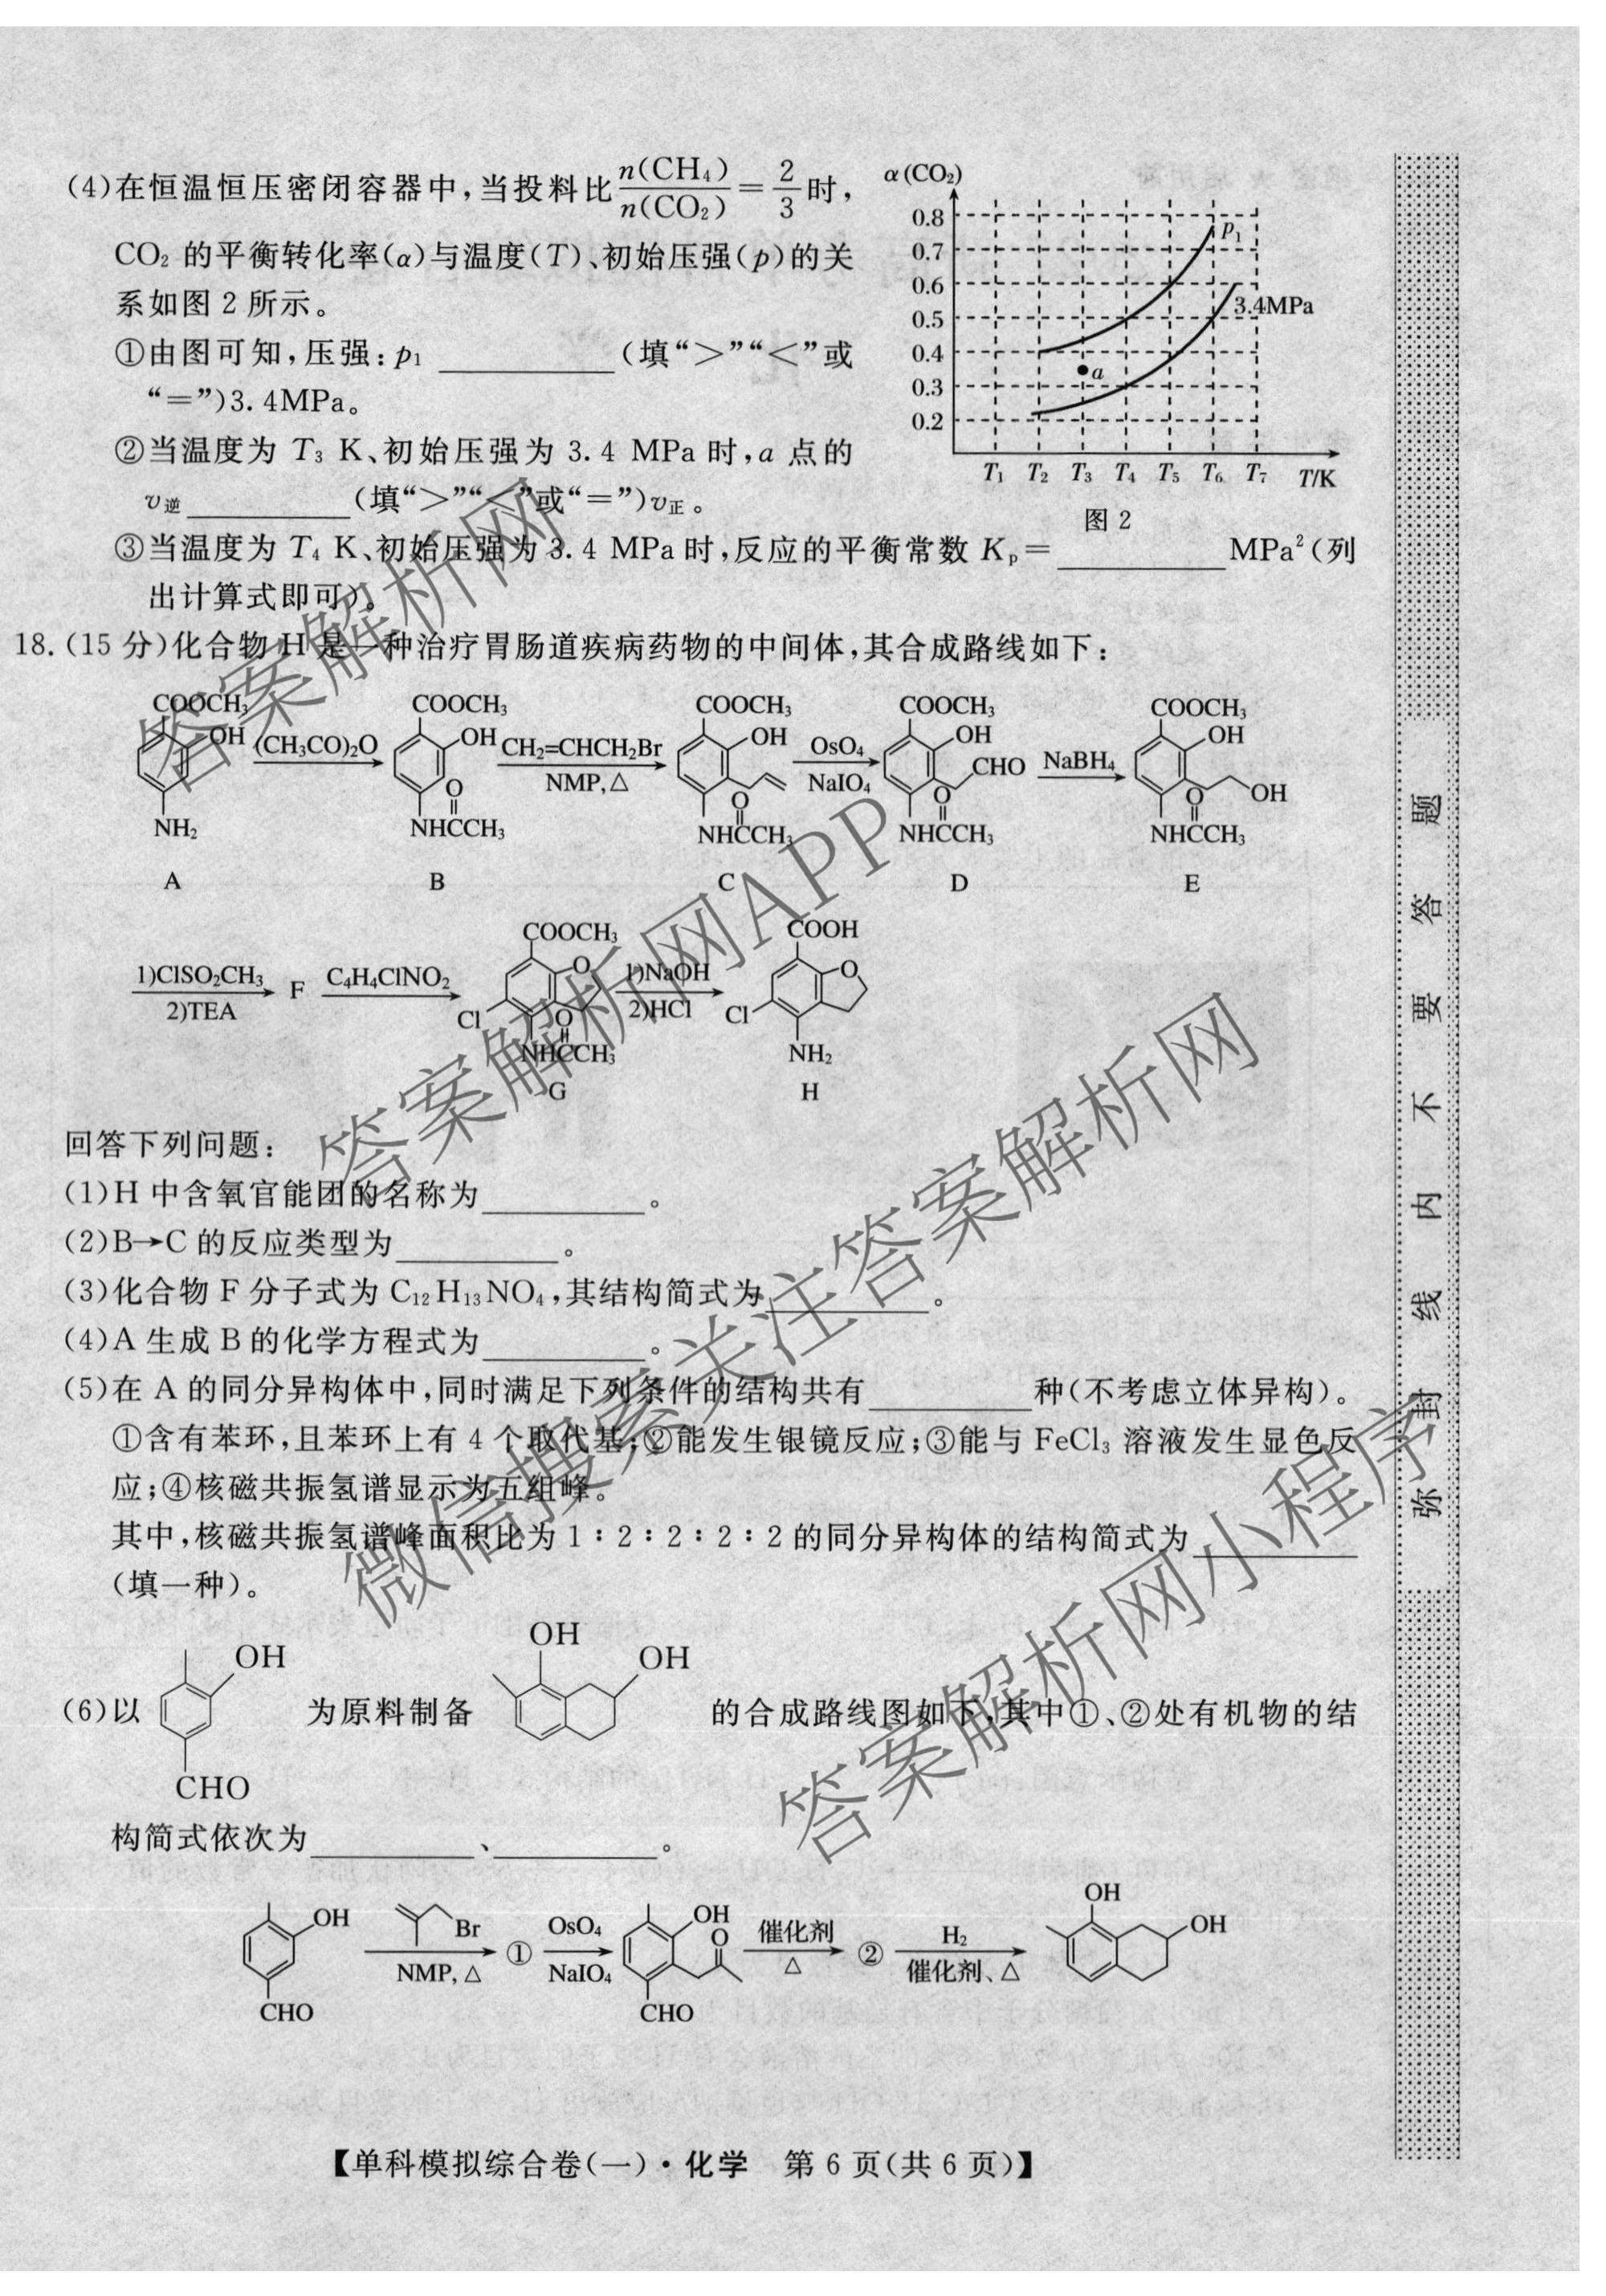 (4)在恒温恒压密闭容器中,当投料比n(CH₄)/n(CO₂)=2/3时,
CO₂ 的平衡转化率(α)与温度(T)、初始压强(p)的关
系如图 2 所示。
①由图可知,压强:p₁ ________(填“>”“<”或
“=”)3.4MPa。
②当温度为 T₃ K、初始压强为 3.4 MPa 时,a 点的
v逆________(填“>”“<”或“=”)v正。
α(CO₂)
0.8
0.7
0.6
0.5
0.4
0.3
0.2
p₁
3.4MPa
a
T₁ T₂ T₃ T₄ T₅ T₆ T₇ T/K
图 2
③当温度为 T₄ K、初始压强为 3.4 MPa 时,反应的平衡常数 Kₚ=________MPa²(列
出计算式即可)。
18.(15 分)化合物 H 是一种治疗胃肠道疾病药物的中间体,其合成路线如下:
COOCH₃ COOCH₃ COOCH₃ COOCH₃ COOCH₃
OH (CH₃CO)₂O OH CH₂=CHCH₂Br OH OsO₄ OH NaBH₄ OH
NMP,△ NaIO₄ CHO OH
O O O O
NH₂ NHCCH₃ NHCCH₃ NHCCH₃ NHCCH₃
A B C D E
COOCH₃ COOH
1)ClSO₂CH₃ F C₄H₄ClNO₂ O 1)NaOH O
2)TEA Cl O 2)HCl Cl
NHCCH₃ NH₂
G H
回答下列问题:
(1)H 中含氧官能团的名称为________。
(2)B→C 的反应类型为________。
(3)化合物 F 分子式为 C₁₂H₁₃NO₄,其结构简式为________。
(4)A 生成 B 的化学方程式为________。
(5)在 A 的同分异构体中,同时满足下列条件的结构共有________种(不考虑立体异构)。
①含有苯环,且苯环上有 4 个取代基;②能发生银镜反应;③能与 FeCl₃ 溶液发生显色反
应;④核磁共振氢谱显示为五组峰。
其中,核磁共振氢谱峰面积比为 1∶2∶2∶2∶2 的同分异构体的结构简式为________
(填一种)。
OH
OH OH
(6)以 为原料制备 的合成路线图如下,其中①、②处有机物的结
CHO
构简式依次为________、________。
OH
OH Br OsO₄ OH O 催化剂 H₂ OH
NMP,△ ① NaIO₄ △ ② 催化剂、△
CHO CHO
【单科模拟综合卷(一)·化学 第 6 页(共 6 页)】
弥 封 线 内 不 要 答 题
答案解析网
答案解析网APP
微信搜索关注答案解析网
答案解析网小程序